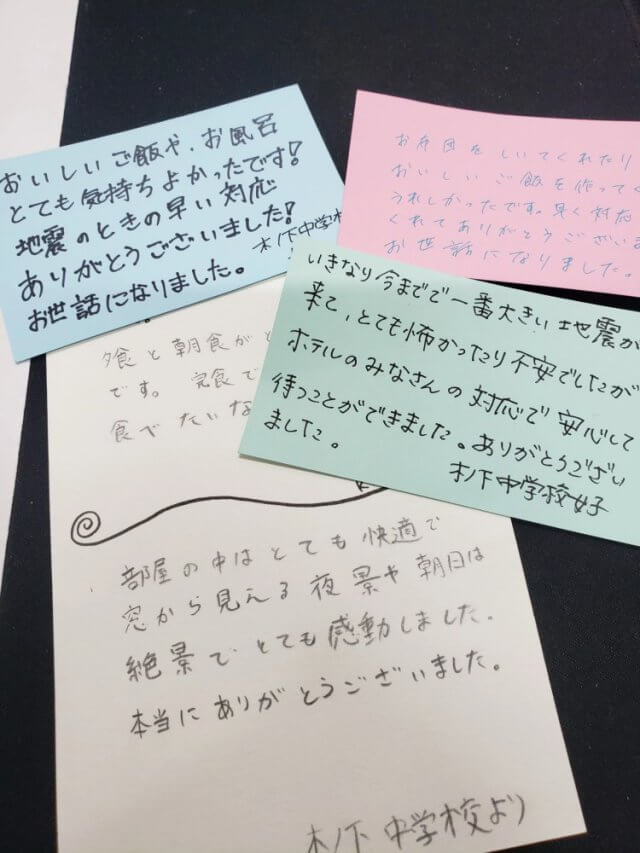 おいしいご飯や、お風呂
とても気持ちよかったです!
地震のときの早い対応
ありがとうございました!
お世話になりました。
木ノ下中学校
お布団をしいてくれたり
おいしいご飯を作って
うれしかったです。早く対応
くれてありがとうございま
お世話になりました。
いきなり今までで一番大きい地震が
来て、とても怖かったり不安でしたが
ホテルのみなさんの対応で安心して
待つことができました。ありがとうござい
ました。
木ノ下中学校
夕食と朝食がと
です。完食で
食べたいな
部屋の中はとても快適で
窓から見える夜景や朝日は
絶景でとても感動しました。
本当にありがとうございました。
木ノ下中学校より